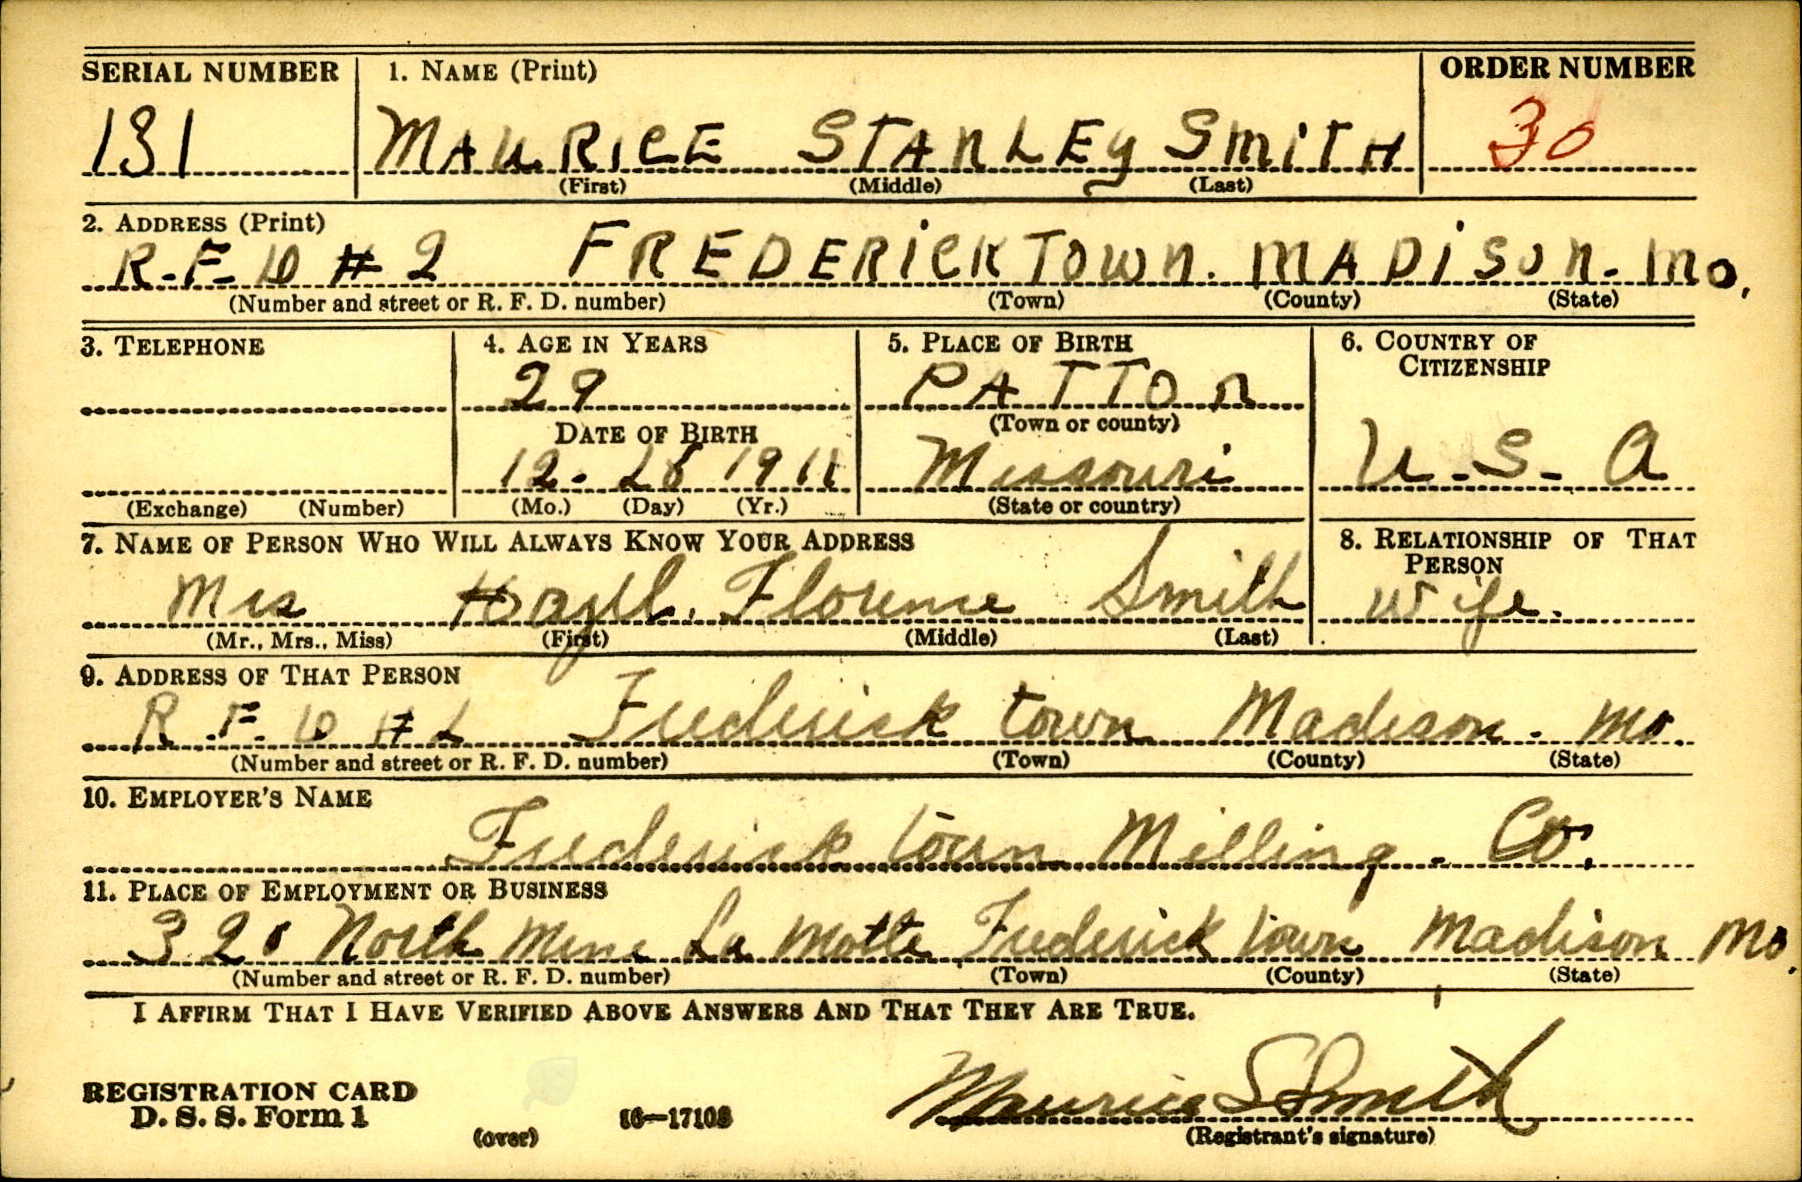 SERIAL NUMBER 1. NAME (Print) ORDER NUMBER
131 MAURICE STANLEY SMITH 30
(First) (Middle) (Last)
2. ADDRESS (Print)
R.F.D #2 FREDERICKTOWN. MADISON. MO.
(Number and street or R. F. D. number) (Town) (County) (State)
3. TELEPHONE 4. AGE IN YEARS 5. PLACE OF BIRTH 6. COUNTRY OF CITIZENSHIP
29 PATTON
DATE OF BIRTH (Town or county)
12. 28 1911 Missouri U.S.A
(Exchange) (Number) (Mo.) (Day) (Yr.) (State or country)
7. NAME OF PERSON WHO WILL ALWAYS KNOW YOUR ADDRESS 8. RELATIONSHIP OF THAT PERSON
Mrs Hazel. Florence Smith Wife.
(Mr., Mrs., Miss) (First) (Middle) (Last)
9. ADDRESS OF THAT PERSON
R.F.D #2 Frederick town Madison. Mo.
(Number and street or R. F. D. number) (Town) (County) (State)
10. EMPLOYER'S NAME
Frederick town Milling. Co.
11. PLACE OF EMPLOYMENT OR BUSINESS
320 North Mine La Motte Frederick town Madison Mo.
(Number and street or R. F. D. number) (Town) (County) (State)
I AFFIRM THAT I HAVE VERIFIED ABOVE ANSWERS AND THAT THEY ARE TRUE.
Maurice S Smith
REGISTRATION CARD
D. S. S. Form 1
(over) 16—17108 (Registrant's signature)